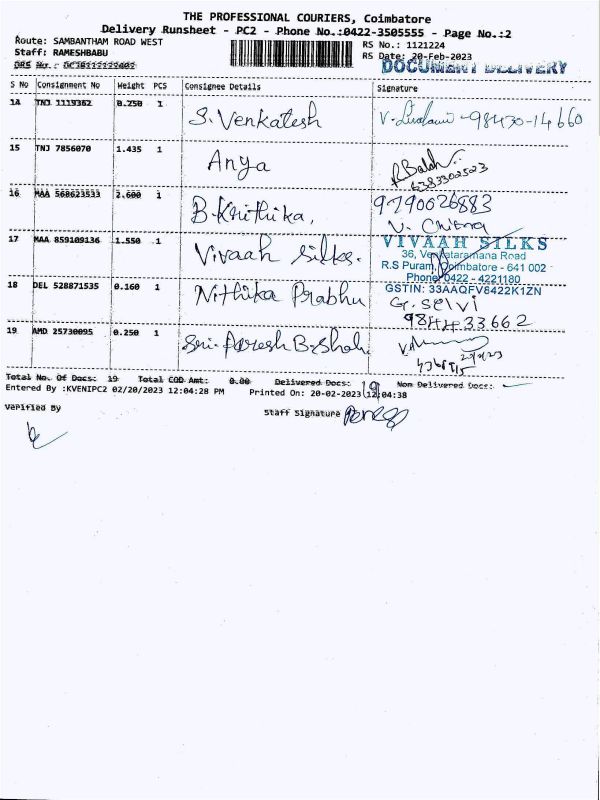 THE PROFESSIONAL COURIERS, Coimbatore
Delivery Runsheet - PC2 - Phone No.:0422-3505555 - Page No.:2
Route: SAMBANTHAM ROAD WEST
RS No.: 1121224
Staff: RAMESHBABU
RS Date: 20-Feb-2023
DRS No.:
DOCUMENT DELIVERY
S No Consignment No Weight PCS Consignee Details Signature
14 TNJ 1119362 0.250 1 S. Venkatesh V. -98430-14660
15 TNJ 7856070 1.435 1 Anya
6383302523
16 MAA 568623533 2.600 1 B. Krithika, 9790026883
V. Chitra
17 MAA 859109136 1.550 1 Vivaah Silks. VIVAAH SILKS
36, Venkataramana Road
R.S Puram, Coimbatore - 641 002
Phone: 0422 - 4221180
GSTIN: 33AAQFV8422K1ZN
18 DEL 528871535 0.160 1 Nithika Prabhu G. Selvi
9844433662
19 AMD 25730095 0.250 1 Sri. B. Shah.
Total No. Of Docs: 19 Total COD Amt: 0.00 Delivered Docs: 19 Non Delivered Docs:
Entered By :KVENIPC2 02/20/2023 12:04:28 PM Printed On: 20-02-2023 12:04:38
Verified By
Staff Signature